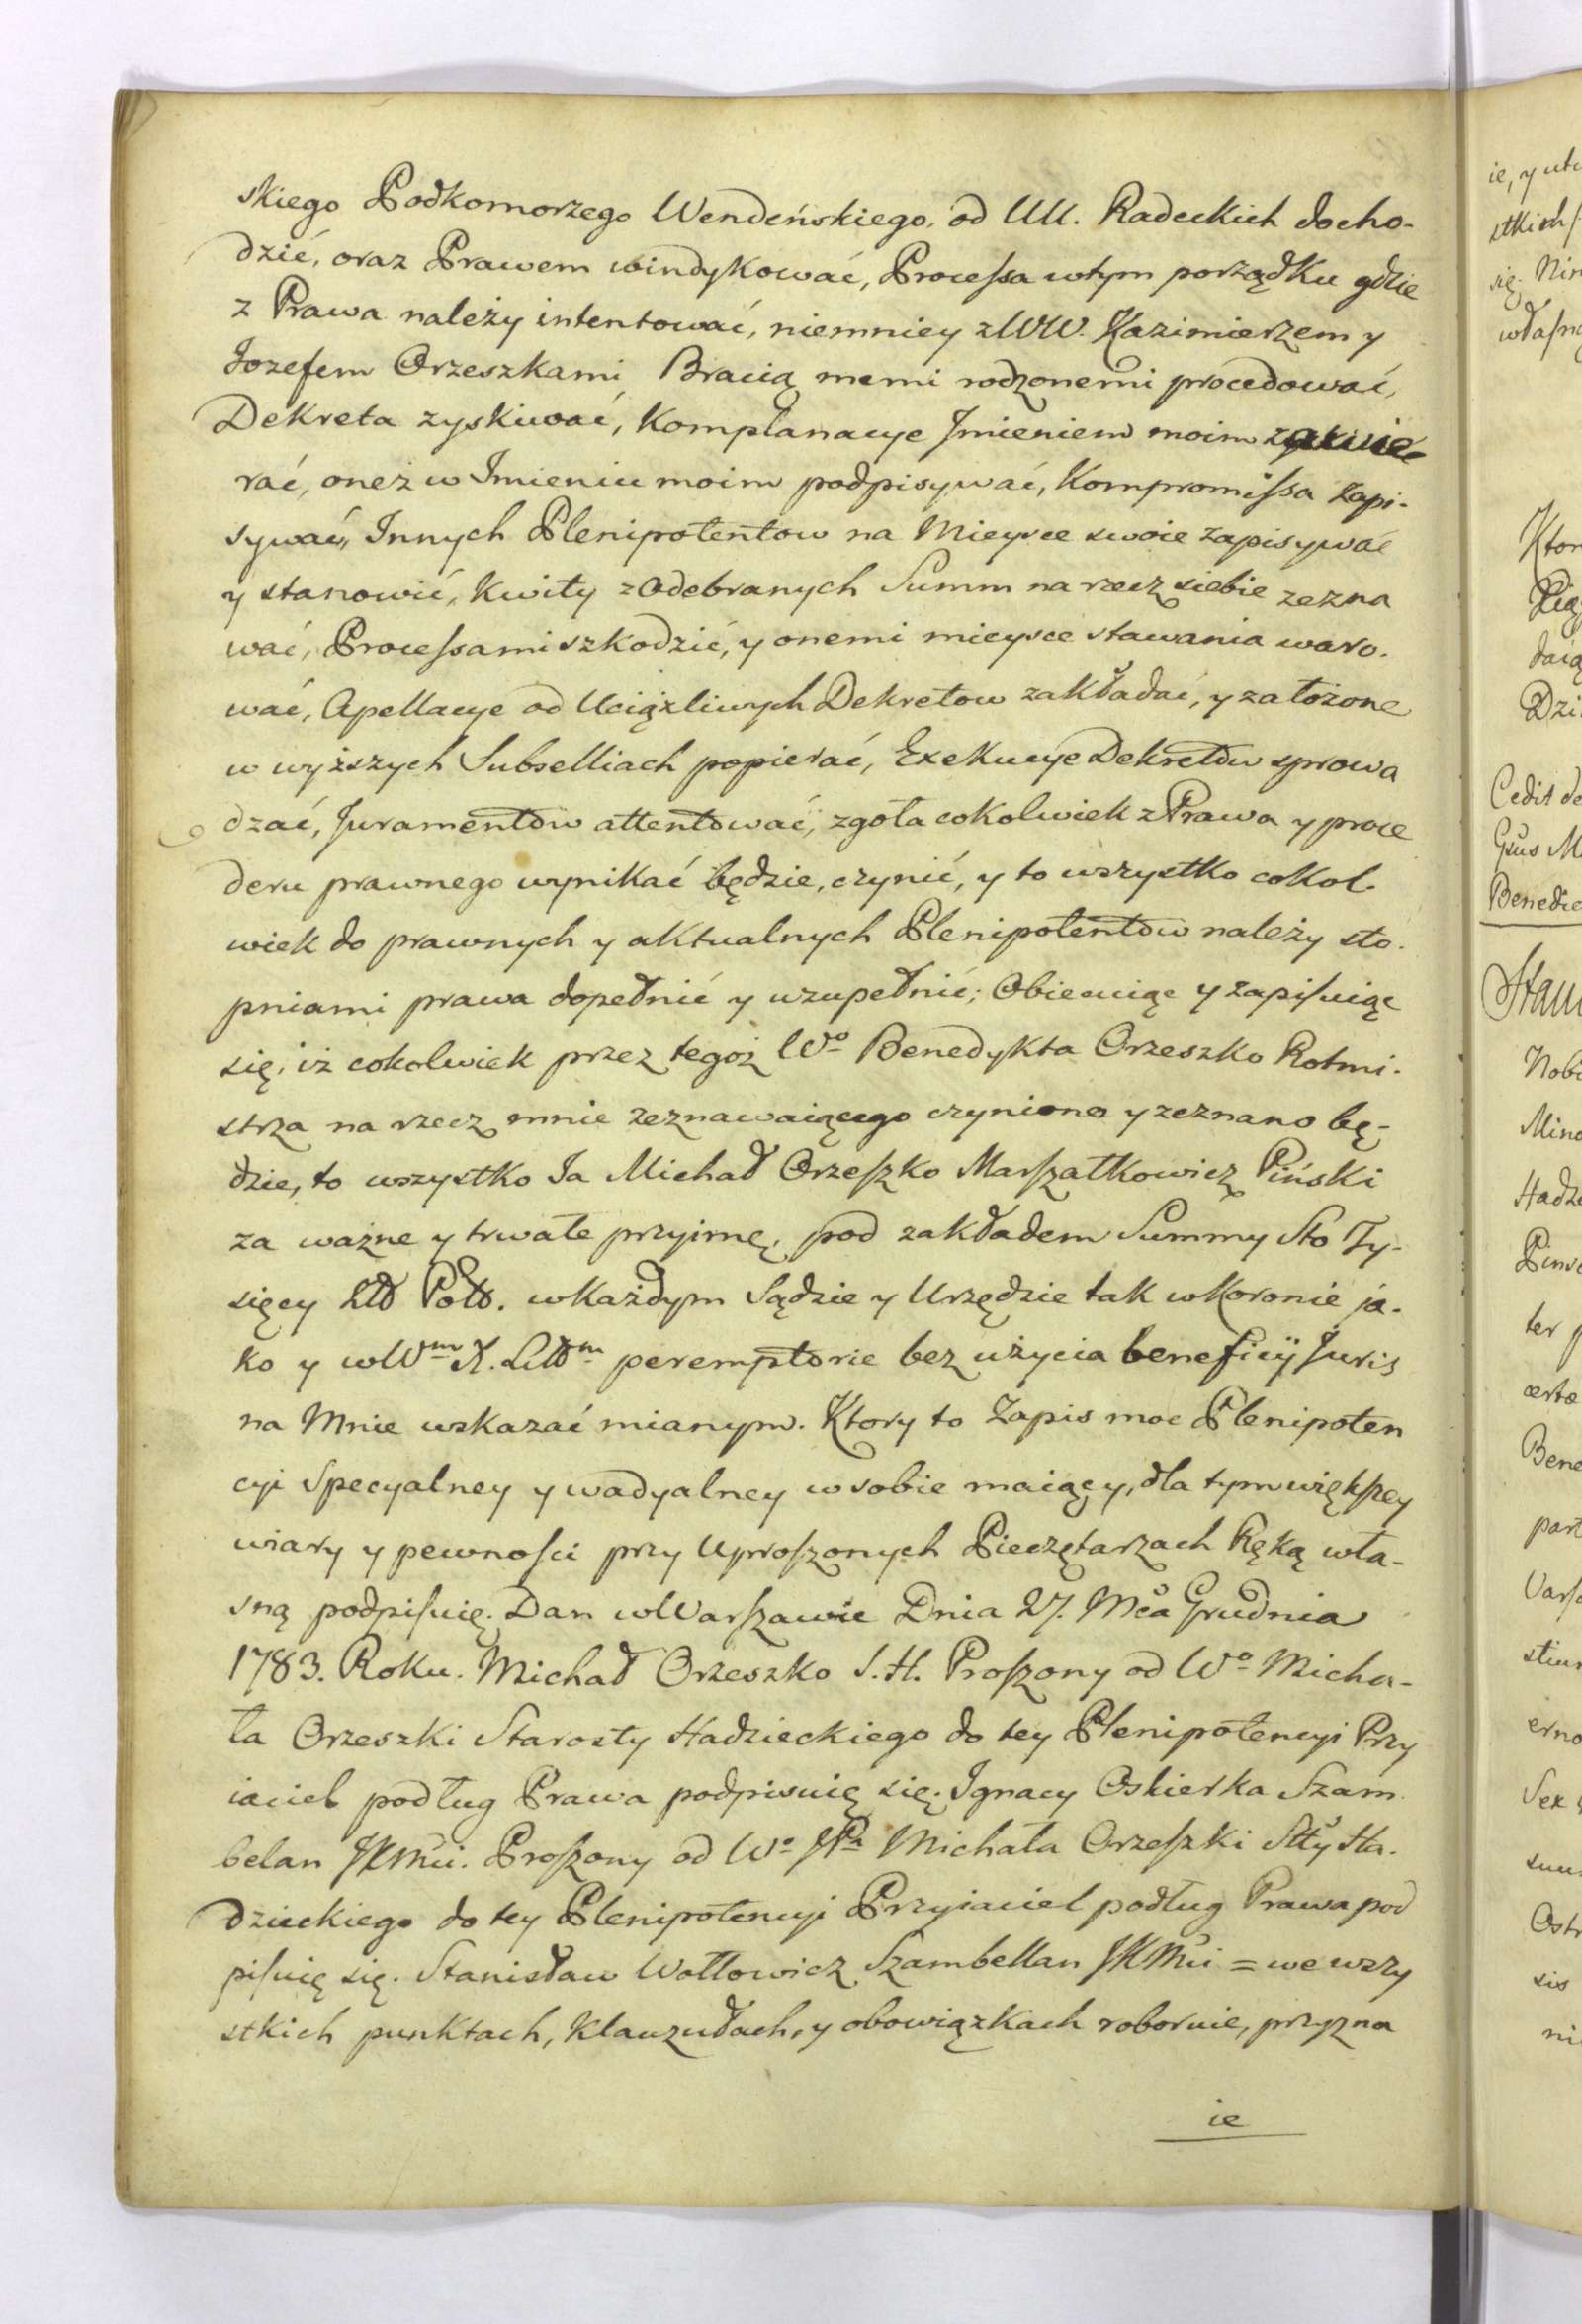 skiego Podkomorzego Wendeńskiego, od UU. Radeckich docho-
dzić, oraz Prawem windykować, Processa wtym porządku gdzie
z Prawa należy intentować, niemniey z WW. Kazimierzem y
Jozefem Orzeszkami Bracią memi rodzonemi procedować,
Dekreta zyskiwać, Komplanacye Jmieniem moim zawie-
rać, oneż w Jmieniu moim podpisywać, Kompromissa zapi-
sywać, Innych Plenipotentow na Mieysce swoie zapisywać
y stanowić, Kwity z Odebranych Summ na rzecz siebie zezna
wać, Processami szkodzić, y onemi mieysce stawania waro-
wać, Apellacye od Uciążliwych Dekretow zakładać, y założone
w wyższych Subselliach popierać, Exekucye Dekretow sprowa
dzać, Juramentow attentować, zgoła cokolwiek z Prawa y proce
deru prawnego wynikać będzie, czynić, y to wszystko cokol-
wiek do prawnych y aktualnych Plenipotentow należy sto-
pniami prawa dopełnić y uzupełnić; Obiecuiąc y zapisuiąc
się, iż cokolwiek przez tegoż Wo Benedykta Orzeszko Rotmi-
strza na rzecz mnie zeznawaiącego czyniono y zeznano bę-
dzie, to wszystko Ja Michał Orzeszko Marszałkowicz Piński
za ważne y trwałe przyimę, pod zakładem Summy Sto Ty-
sięcy Złł Polł. wkażdym Sądzie y Urzędzie tak wKoronie ja-
ko y wWm X. Littm peremptorie bez użycia beneficij Juris
na Mnie wskazać mianym. Ktory to Zapis moc Plenipoten
cyi Specyalney y wadyalney w sobie maiący, dla tym większey
wiary y pewności przy Uproszonych Pieczętarzach Ręką wła-
sną podpisuię. Dan wWarszawie Dnia 27. Mca Grudnia
1783. Roku. Michał Orzeszko S. H. Proszony od Wo Micha-
ła Orzeszki Starosty Hadzieckiego do tey Plenipotencyi Przy
iaciel podług Prawa podpisuię się. Ignacy Oskierka Szam
belan JKMci. Proszony od Wo JPa Michała Orzeszki Stty Ha-
dzieckiego do tey Plenipotencyi Przyiaciel podług Prawa pod
pisuię się. Stanisław Wołłowicz Szambellan JKMci = we wszy
stkich punktach, Klauzułach, y obowiązkach roboruie, przyzna
ie